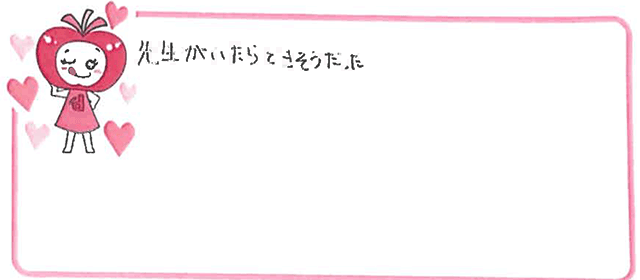 先生がいたらときそうだった